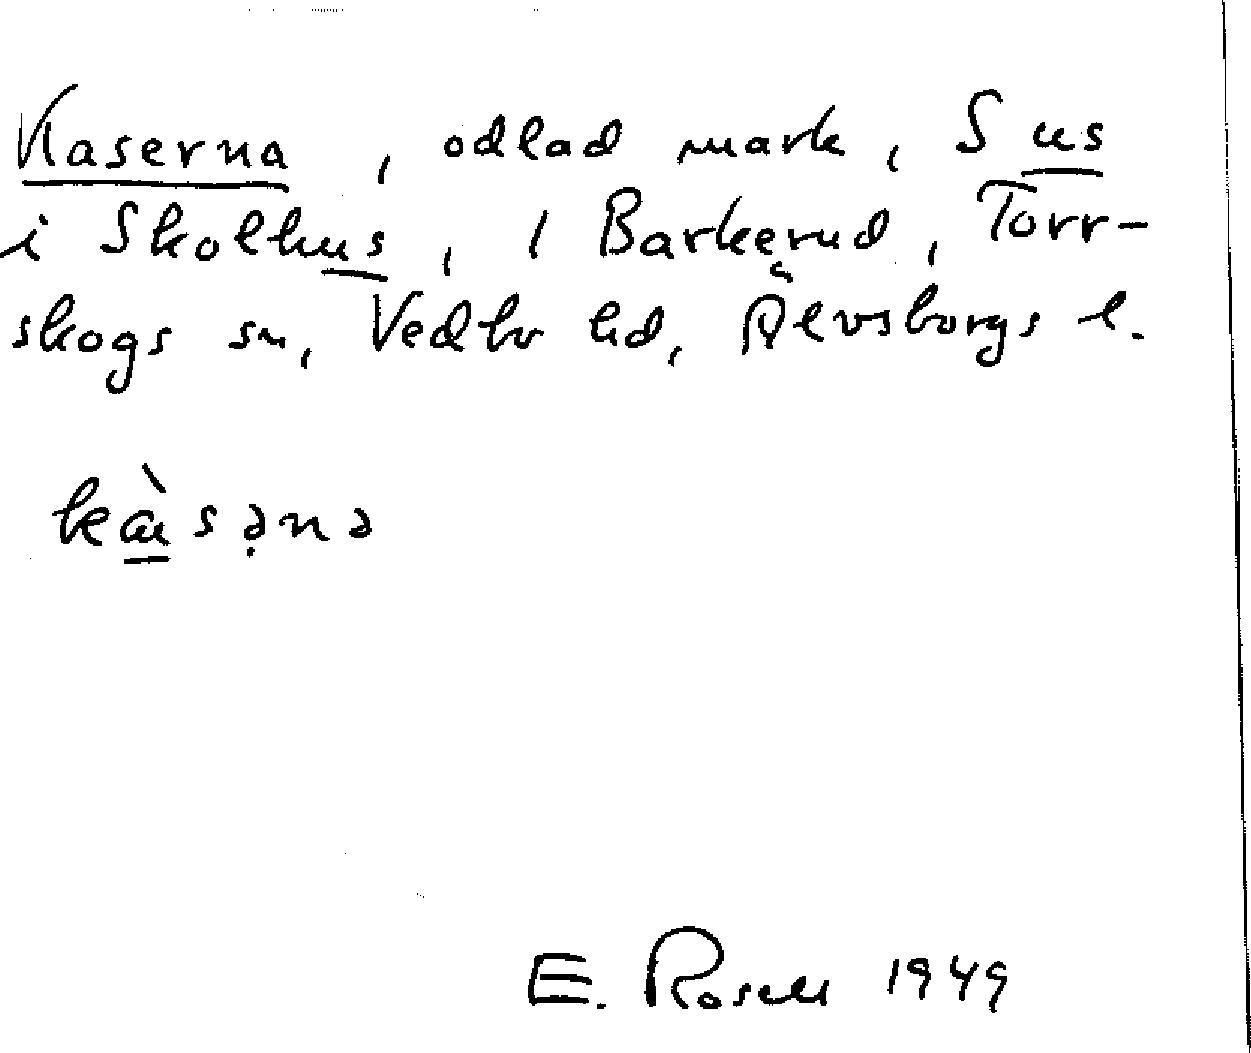 Kaserna, odlad mark, S us
i Skolhus, 1 Barkerud, Torr-
skogs sn, Vedbo hd, Älvsborgs l.
kàsəna
E. Rosell 1949